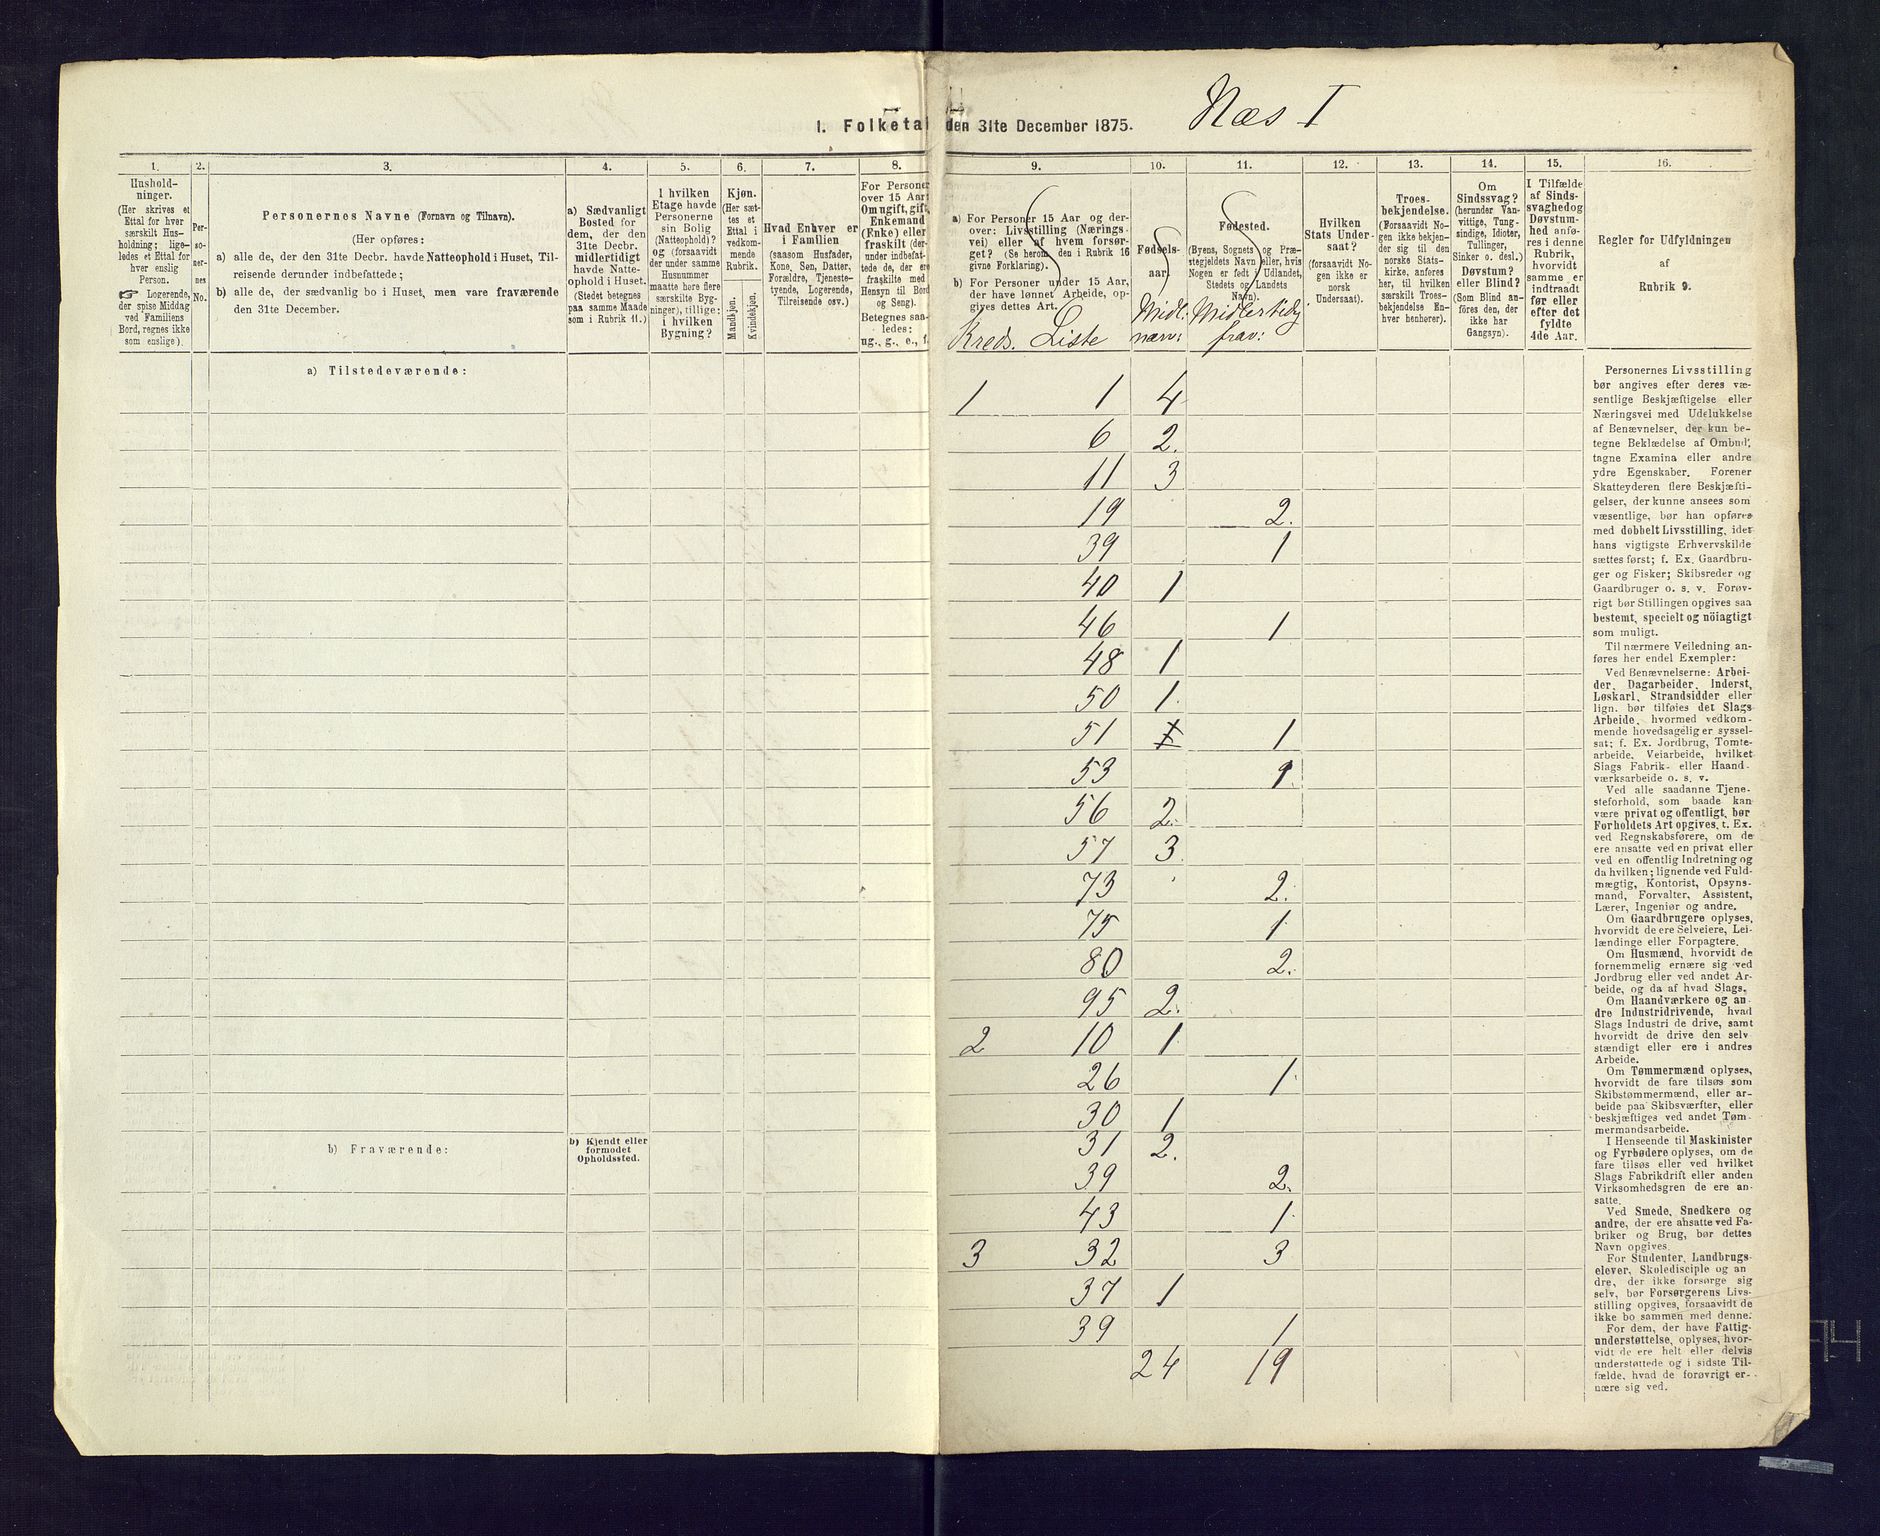 Næs I
1. Folketal den 31te December 1875.
1. 2. 3. 4. 5. 6. 7. 8. 9. 10. 11. 12. 13. 14. 15. 16.
Hushold-
ninger.
(Her skrives et
Ettal for hver
særskilt Hus-
holdning; lige-
ledes et Ettal for
hver enslig
Person.
☞ Logerende,
der spise Middag
ved Familiens
Bord, regnes ikke
som enslige).
Per-
so-
ner-
nes
No.
Personernes Navne (Fornavn og Tilnavn).
(Her opføres:
a) alle de, der den 31te Decbr. havde Natteophold i Huset, Til-
reisende derunder indbefattede;
b) alle de, der sædvanlig bo i Huset, men vare fraværende
den 31te December.
a) Sædvanligt
Bosted for
dem, der den
31te Decbr.
midlertidigt
havde Natte-
ophold i Huset.
(Stedet betegnes
paa samme Maade
som i Rubrik 11.)
I hvilken
Etage havde
Personerne
sin Bolig
(Natteophold)?
og (forsaavidt
der under samme
Husnummer
maatte høre flere
særskilte Byg-
ninger), tillige:
i hvilken
Bygning?
Kjøn.
(Her sæt-
tes et
Ettal i
vedkom-
mende
Rubrik.
Mandkjøn.
Kvindekjøn.
Hvad Enhver er
i Familien
(saasom Husfader,
Kone, Søn, Datter,
Forældre, Tjeneste-
tyende, Logerende,
Tilreisende osv.)
For Personer
over 15 Aar:
Om ugift, gift,
Enkemand
(Enke) eller
fraskilt (der-
under indbefat-
tede de, der ere
fraskilte med
Hensyn til Bord
og Seng).
Betegnes saa-
ledes:
ug., g., e., f.
a) For Personer 15 Aar og der-
over: Livsstilling (Nærings-
vei) eller af hvem forsør-
get? (Se herom den i Rubrik 16
givne Forklaring).
b) For Personer under 15 Aar,
der have lønnet Arbeide, op-
gives dettes Art.
Kreds. Liste
Fødsels-
aar.
Midl:
nærv:
Fødested.
(Byens, Sognets og Præ-
stegjeldets Navn eller, hvis
Nogen er født i Udlandet,
Stedets og Landets
Navn).
Midlertidig
frav:
Hvilken
Stats Under-
saat?
(forsaavidt No-
gen ikke er
norsk
Undersaat).
Troes-
bekjendelse.
(Forsaavidt No-
gen ikke bekjen-
der sig til den
norske Stats-
kirke, anføres
her, til hvilken
særskilt Troes-
bekjendelse En-
hver henhører).
Om
Sindssvag?
(herunder Van-
vittige, Tung-
sindige, Idioter,
Tullinger,
Sinker o. desl.)
Døvstum?
eller Blind?
(Som Blind an-
føres den, der
ikke har
Gangsyn).
I Tilfælde
af Sinds-
svaghed og
Døvstum-
hed anfø-
res i denne
Rubrik,
hvorvidt
samme er
indtraadt
før eller
efter det
fyldte
4de Aar.
Regler for Udfyldningen
af
Rubrik 9.
a) Tilstedeværende:
1 1 4
6 2.
11 3
19 2.
39 1
40 1
46 1
48 1
50 1.
51 1
53 1.
56 2.
57 3
73 2.
75 1
80 2.
95 2.
2 10 1
26 1
30 1
31 2.
39 2.
43 1.
3 32 3
37 1
39 1
24 19
b) Fraværende:
b) Kjendt eller
formodet
Opholdssted.
Personernes Livsstilling
bør angives efter deres væ-
sentlige Beskjæftigelse eller
Næringsvei med Udelukkelse
af Benævnelser, der kun be-
tegne Beklædelse af Ombud,
tagne Examina eller andre
ydre Egenskaber. Forener
Skatteyderen flere Beskjæfti-
gelser, der kunne ansees som
væsentlige, bør han opføres
med dobbelt Livsstilling, idet
hans vigtigste Erhvervskilde
sættes først; f. Ex. Gaardbru-
ger og Fisker; Skibsreder og
Gaardbruger o. s. v. Forøv-
rigt bør Stillingen opgives saa
bestemt, specielt og nöiagtigt
som muligt.
Til nærmere Veiledning an-
føres her endel Exempler:
Ved Benævnelserne: Arbei-
der, Dagarbeider, Inderst,
Løskarl, Strandsidder eller
lign. bør tilføies det Slags
Arbeide, hvormed vedkom-
mende hovedsagelig er syssel-
sat; f. Ex. Jordbrug, Tomte-
arbeide, Veiarbeide, hvilket
Slags Fabrik- eller Haand-
værksarbeide o. s. v.
Ved alle saadanne Tjene-
steforhold, som baade kan
være privat og offentligt, bør
Forholdets Art opgives, t. Ex.
ved Regnskabsførere, om de
ere ansatte ved en privat eller
ved en offentlig Indretning og
da hvilken; lignende ved Fuld-
mægtig, Kontorist, Opsyns-
mand, Forvalter, Assistent,
Lærer, Ingeniør og andre.
Om Gaardbrugere oplyses,
hvorvidt de ere Selveiere, Lei-
lændinge eller Forpagtere.
Om Husmænd, hvorvidt de
fornemmelig ernære sig ved
Jordbrug eller ved andet Ar-
beide, og da af hvad Slags.
Om Haandværkere og an-
dre Industridrivende, hvad
Slags Industri de drive, samt
hvorvidt de drive den selv-
stændigt eller ere i andres
Arbeide.
Om Tømmermænd oplyses,
hvorvidt de fare tilsøs som
Skibstømmermænd, eller ar-
beide paa Skibsværfter, eller
beskjæftiges ved andet Tøm-
mermandsarbeide.
I Henseende til Maskinister
og Fyrbødere oplyses, om de
fare tilsøs eller ved hvilket
Slags Fabrikdrift eller anden
Virksomhedsgren de ere an-
satte.
Ved Smede, Snedkere og
andre, der ere ansatte ved Fa-
briker og Brug, bør dettes
Navn opgives.
For Studenter, Landbrugs-
elever, Skoledisciple og an-
dre, der ikke forsørge sig
selv, bør Forsørgerens Livs-
stilling opgives, forsaavidt de
ikke bo sammen med denne.
For dem, der have Fattig-
understøttelse, oplyses, hvor-
vidt de ere helt eller delvis
understøttede og i sidste Til-
fælde, hvad de forøvrigt er-
nære sig ved.